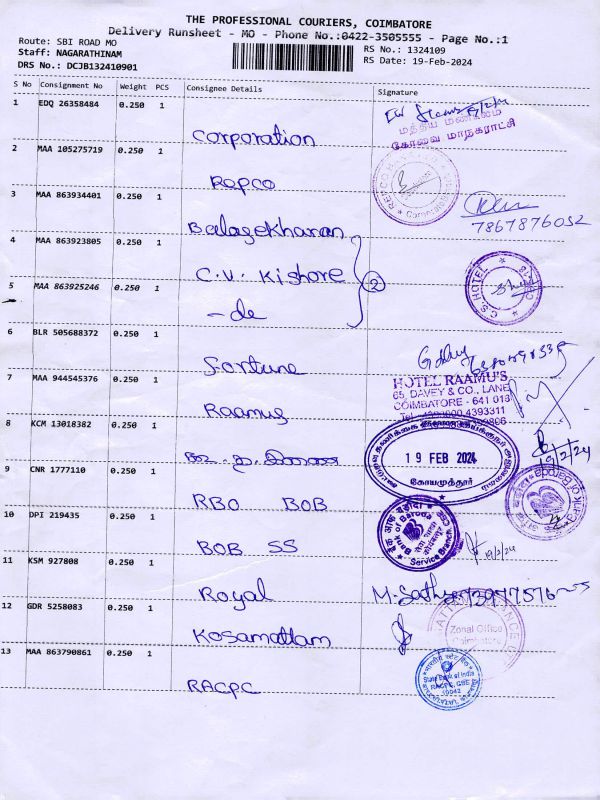 THE PROFESSIONAL COURIERS, COIMBATORE
Delivery Runsheet - MO - Phone No.:0422-3505555 - Page No.:1
Route: SBI ROAD MO
Staff: NAGARATHINAM
DRS No.: DCJB132410901
RS No.: 1324109
RS Date: 19-Feb-2024
S No Consignment No Weight PCS Consignee Details Signature
1 EDQ 26358484 0.250 1 Corporation
மத்திய மண்டலம்
கோவை மாநகராட்சி
2 MAA 105275719 0.250 1 Ropco
3 MAA 863934401 0.250 1 Balagekharan
7867876052
4 MAA 863923805 0.250 1 C.V. Kishore
2
C.S. HOTEL
5 MAA 863925246 0.250 1 - do
6 BLR 505688372 0.250 1 Fortune
7 MAA 944545376 0.250 1 Raamus
HOTEL RAAMU'S
65, DAVEY & CO., LANE
COIMBATORE - 641 018
4393311
8 KCM 13018382 0.250 1
19 FEB 2024
கோயமுத்தூர்
19/2/24
9 CNR 1777110 0.250 1 RBO BOB
10 DPI 219435 0.250 1 BOB SS
Bank of Baroda
Service Branch
19/2/24
11 KSM 927808 0.250 1 Royal
M. Sathya
12 GDR 5258083 0.250 1 Kosamattam
Zonal Office
Coimbatore
13 MAA 863790861 0.250 1 RACPC
भारतीय स्टेट बैंक
State Bank of India
RACPC, CBE
10042